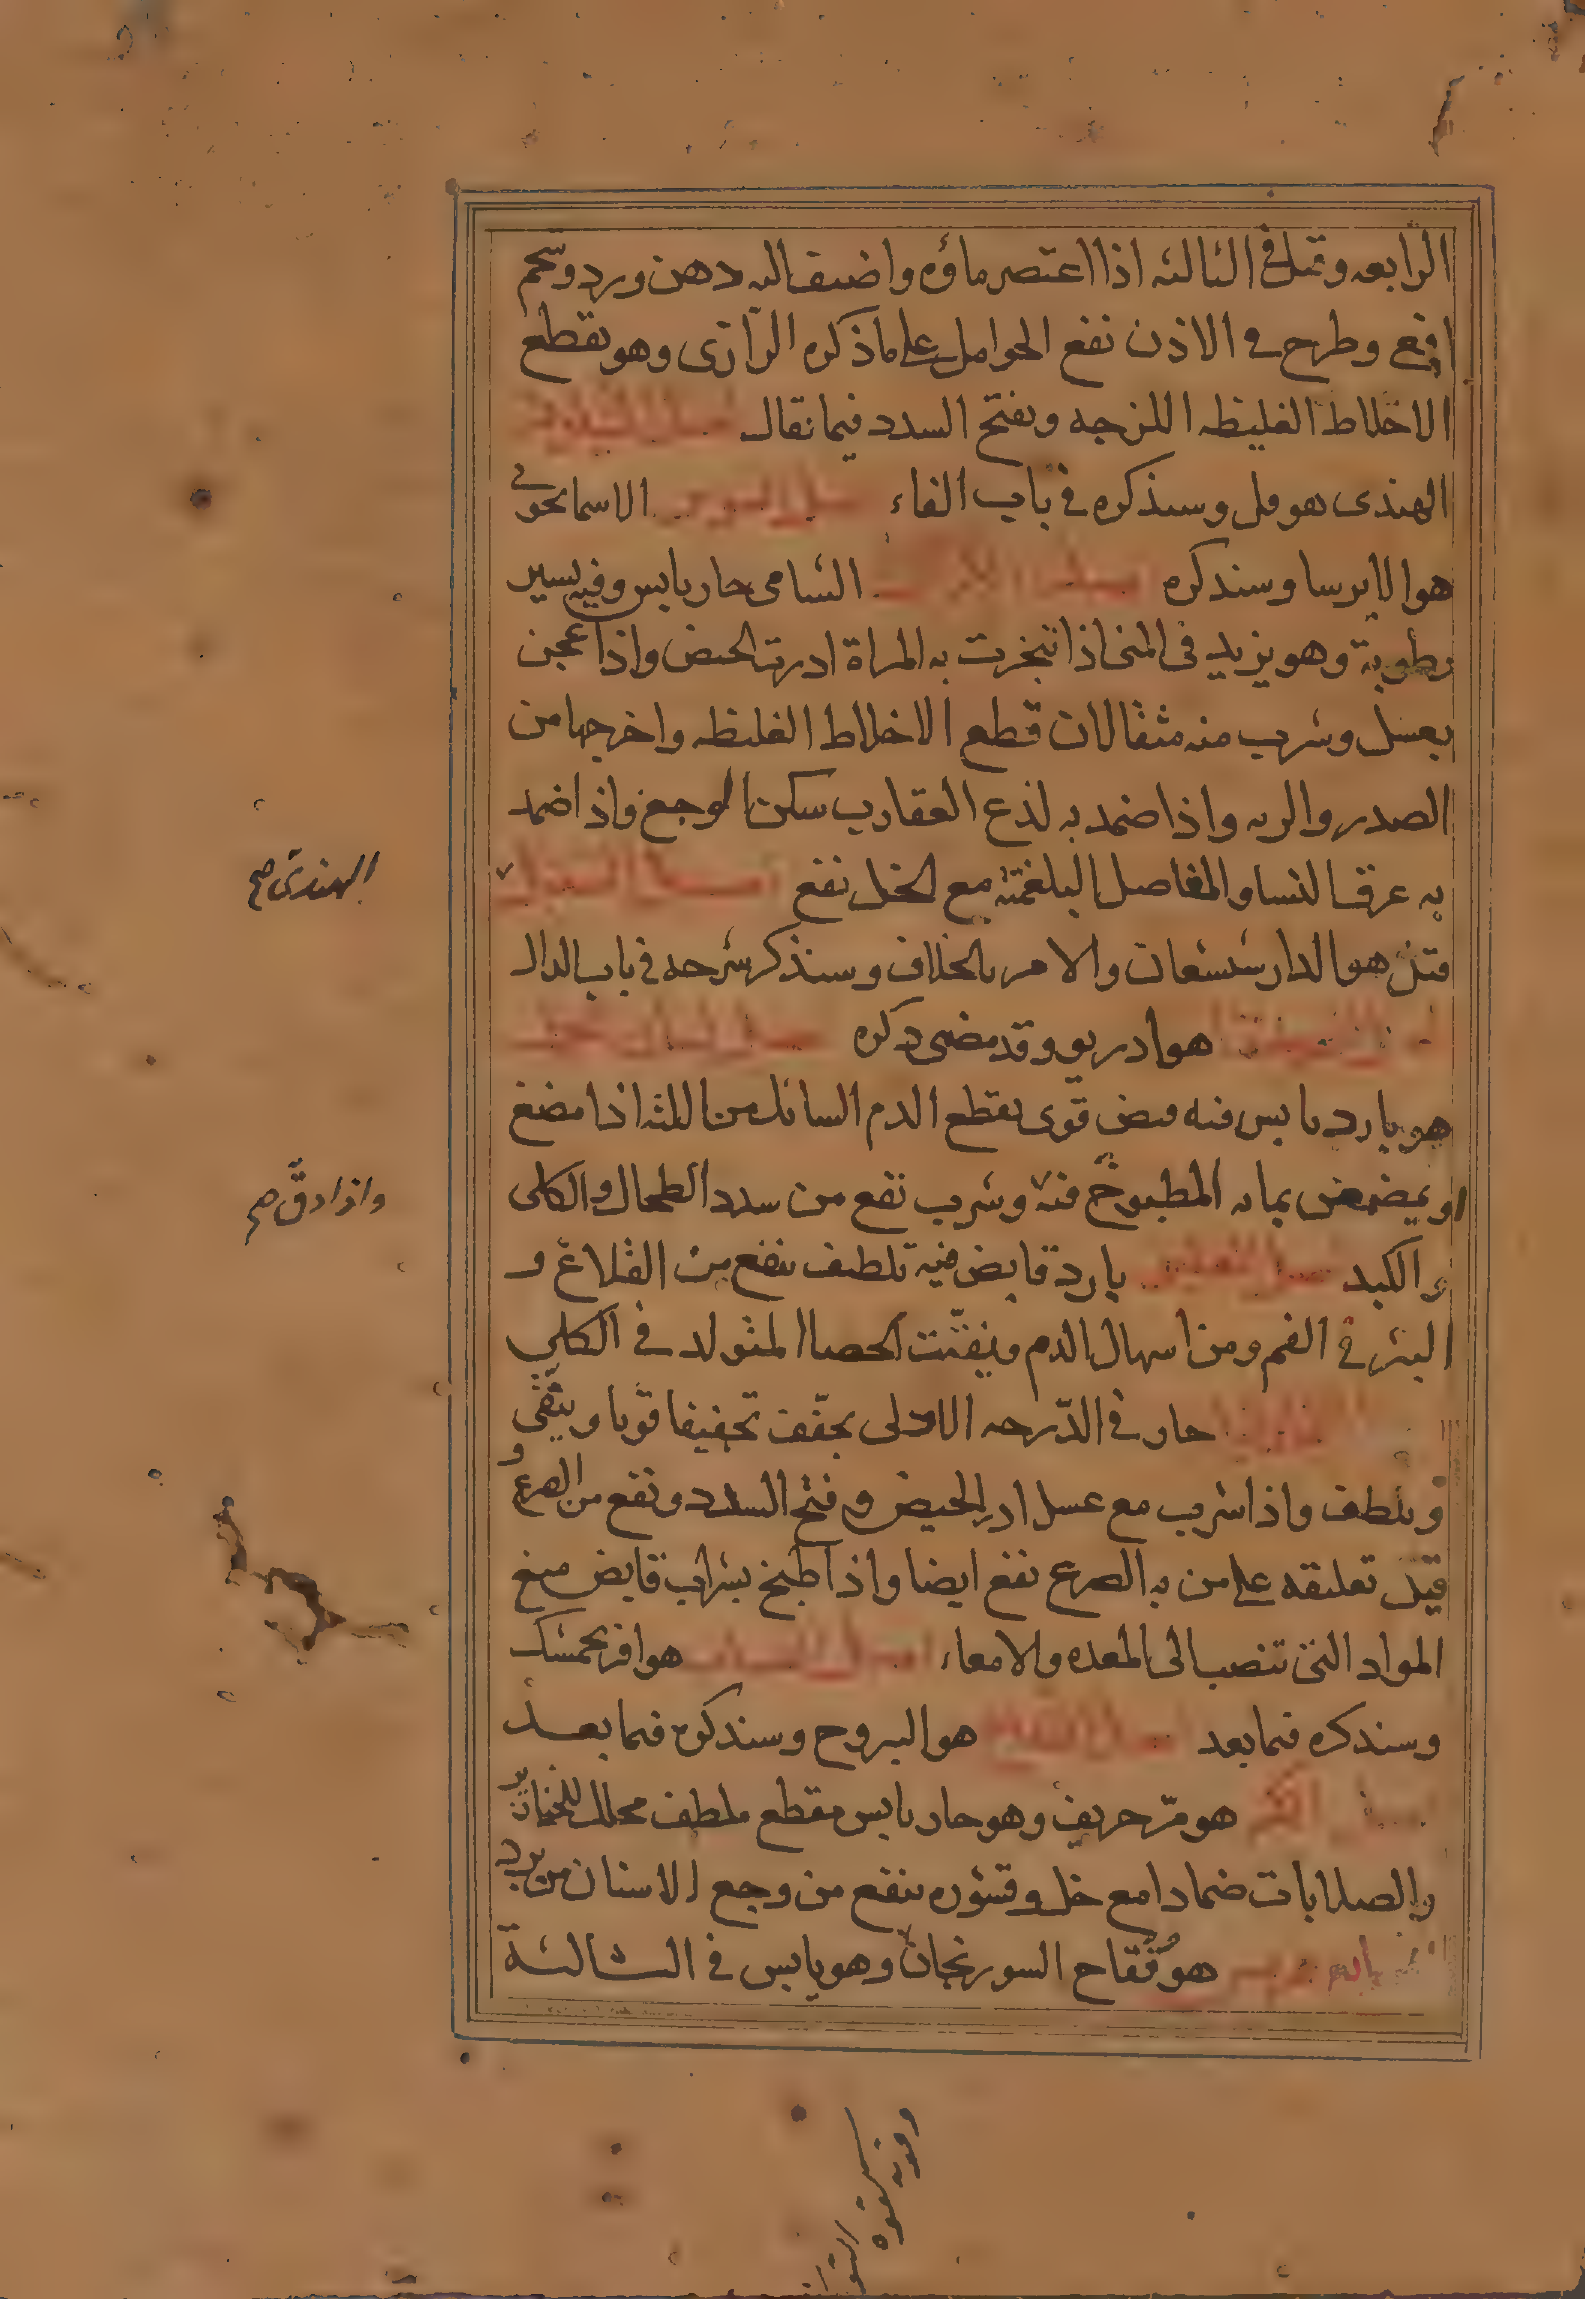 الرابعه وقيل في الثالثه اذا اعتصر ماؤه واضيف اليه دهن ورد وشحم
افعى وطرح في الاذن نفع الحوامل على ما ذكره الرازى وهو يقطع
الاخلاط الغليظه اللزجه ويفتح السدد فيما يقال
الهندى هو فل وسنذكره في باب الفاء اصل السوسن الاسمانجونى
هو الايرسا وسنذكره اصل الانجدان الشامى حار يابس وفيه يسير
رطوبة وهو يزيد في المنى اذا تبخرت به المراة ادرت الحيض واذا عجن
بعسل وشرب منه مثقالان قطع الاخلاط الغليظه واخرجها من
الصدر والريه واذا ضمد به لذع العقارب سكن الوجع واذا ضمد
به عرق النسا والمفاصل البلغمية مع الخل نفع اصل السنبل
الهندى صح
قيل هو الدارشيشعان والامر بالخلاف وسنذكر شرحه في باب الدال
هو ادريو وقد مضى ذكره
هو بارد يابس فيه قبض قوى يقطع الدم السائل من اللثه اذا مضغ
او يمضمض بمائه المطبوخ فيه وشرب نفع من سدد الطحال والكلى
واذا دق صح
والكبد بارد قابض فيه تلطيف ينفع من القلاع و
البثر في الفم ومن اسهال الدم ويفتت الحصا المتولد في الكلى
حار في الدرجه الاولى يجفف تجفيفا قويا وينقى
ويلطف واذا شرب مع عسل ادر الحيض وفتح السدد ونفع من الصرع و
قيل تعليقه على من به الصرع نفع ايضا واذا طبخ بشراب قابض منع
المواد التى تنصب الى المعده والامعاء هو افرنجمشك
وسنذكره فيما بعد هو اليبروح وسنذكره فيما بعد
اصل الكبر هو مر حريف وهو حار يابس مقطع ملطف محلل للخنازير
والصلابات ضمادا مع خل وقشوره ينفع من وجع الاسنان من برد
هو فقاح السورنجان وهو يابس في الثالثة